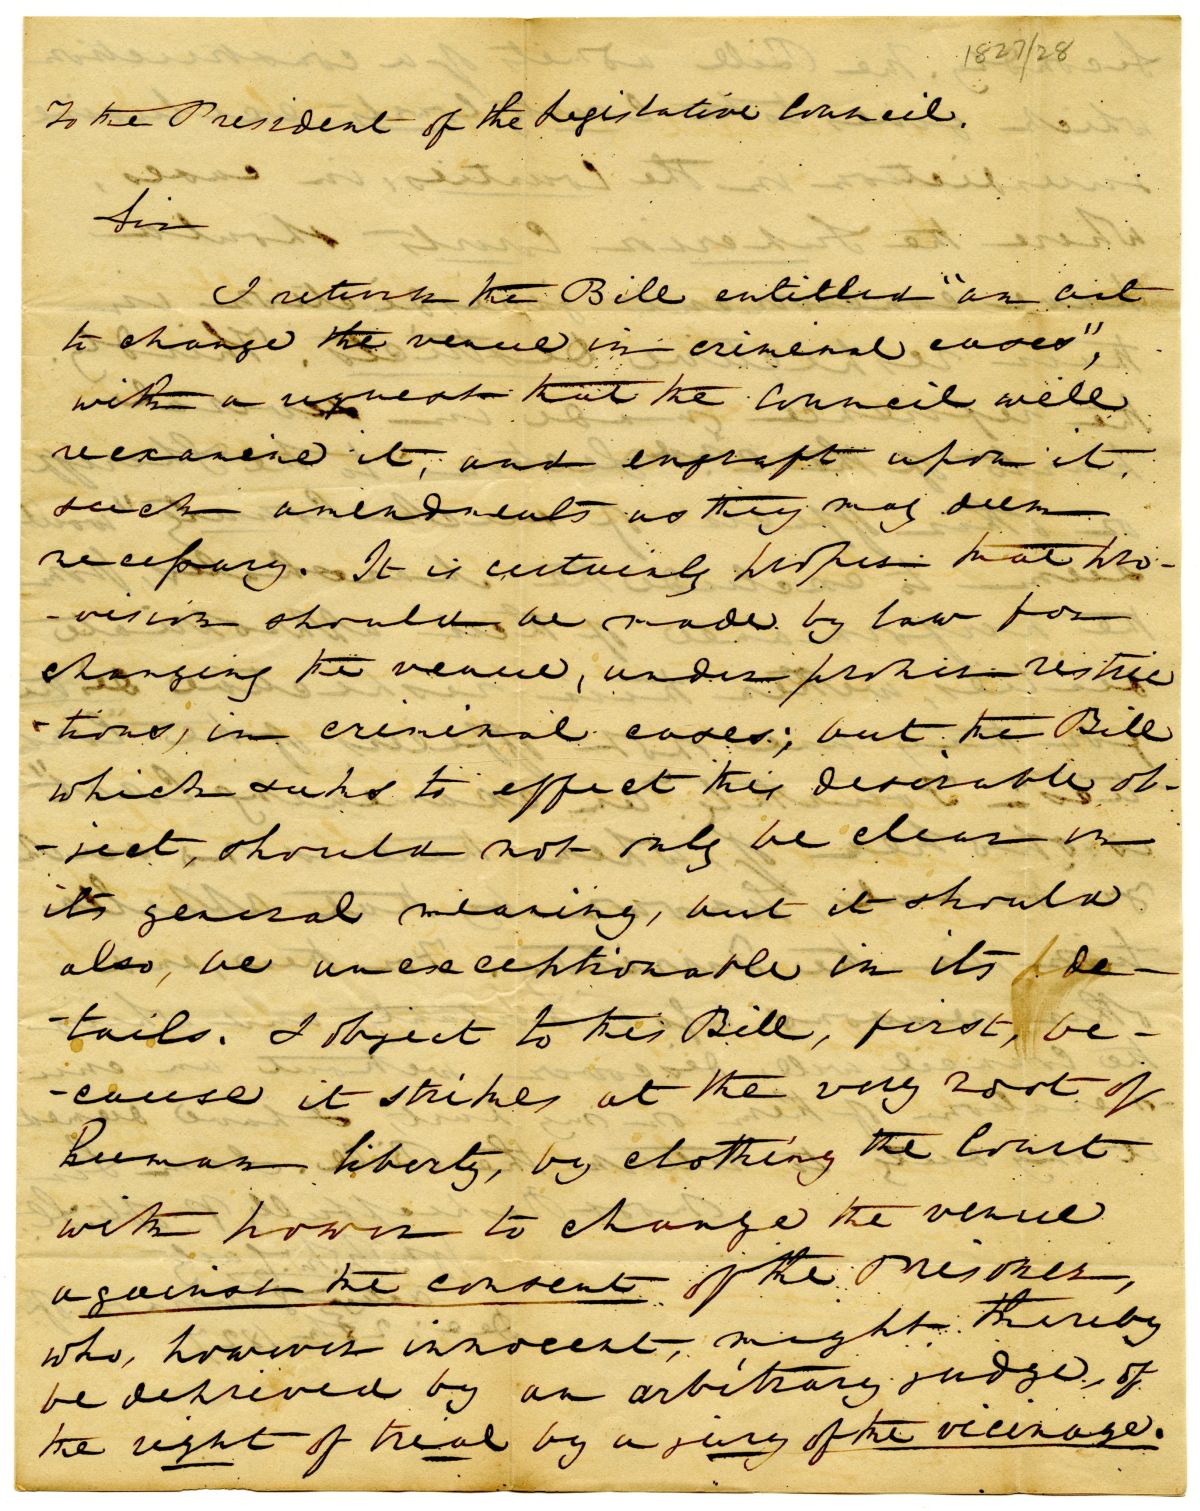 1827/28
To the President of the Legislative Council.
Sir
I return the Bill entitled "an act
to change the venue in criminal cases",
with a request that the Council will
reexamine it, and engraft upon it,
such amendments as they may deem
necessary. It is certainly proper that pro-
-vision should be made by law for
changing the venue, under proper restric
-tions, in criminal cases; but the Bill
which seeks to effect this desirable ob-
-ject, should not only be clear in
its general meaning, but it should
also, be unexceptionable in its de-
-tails. I object to this Bill, first, be-
-cause it strikes at the very root of
human liberty, by clothing the Court
with power to change the venue
against the consent of the prisoner,
who, however innocent, might thereby
be deprived by an arbitrary judge, of
the right of trial by a jury of the vicinage.